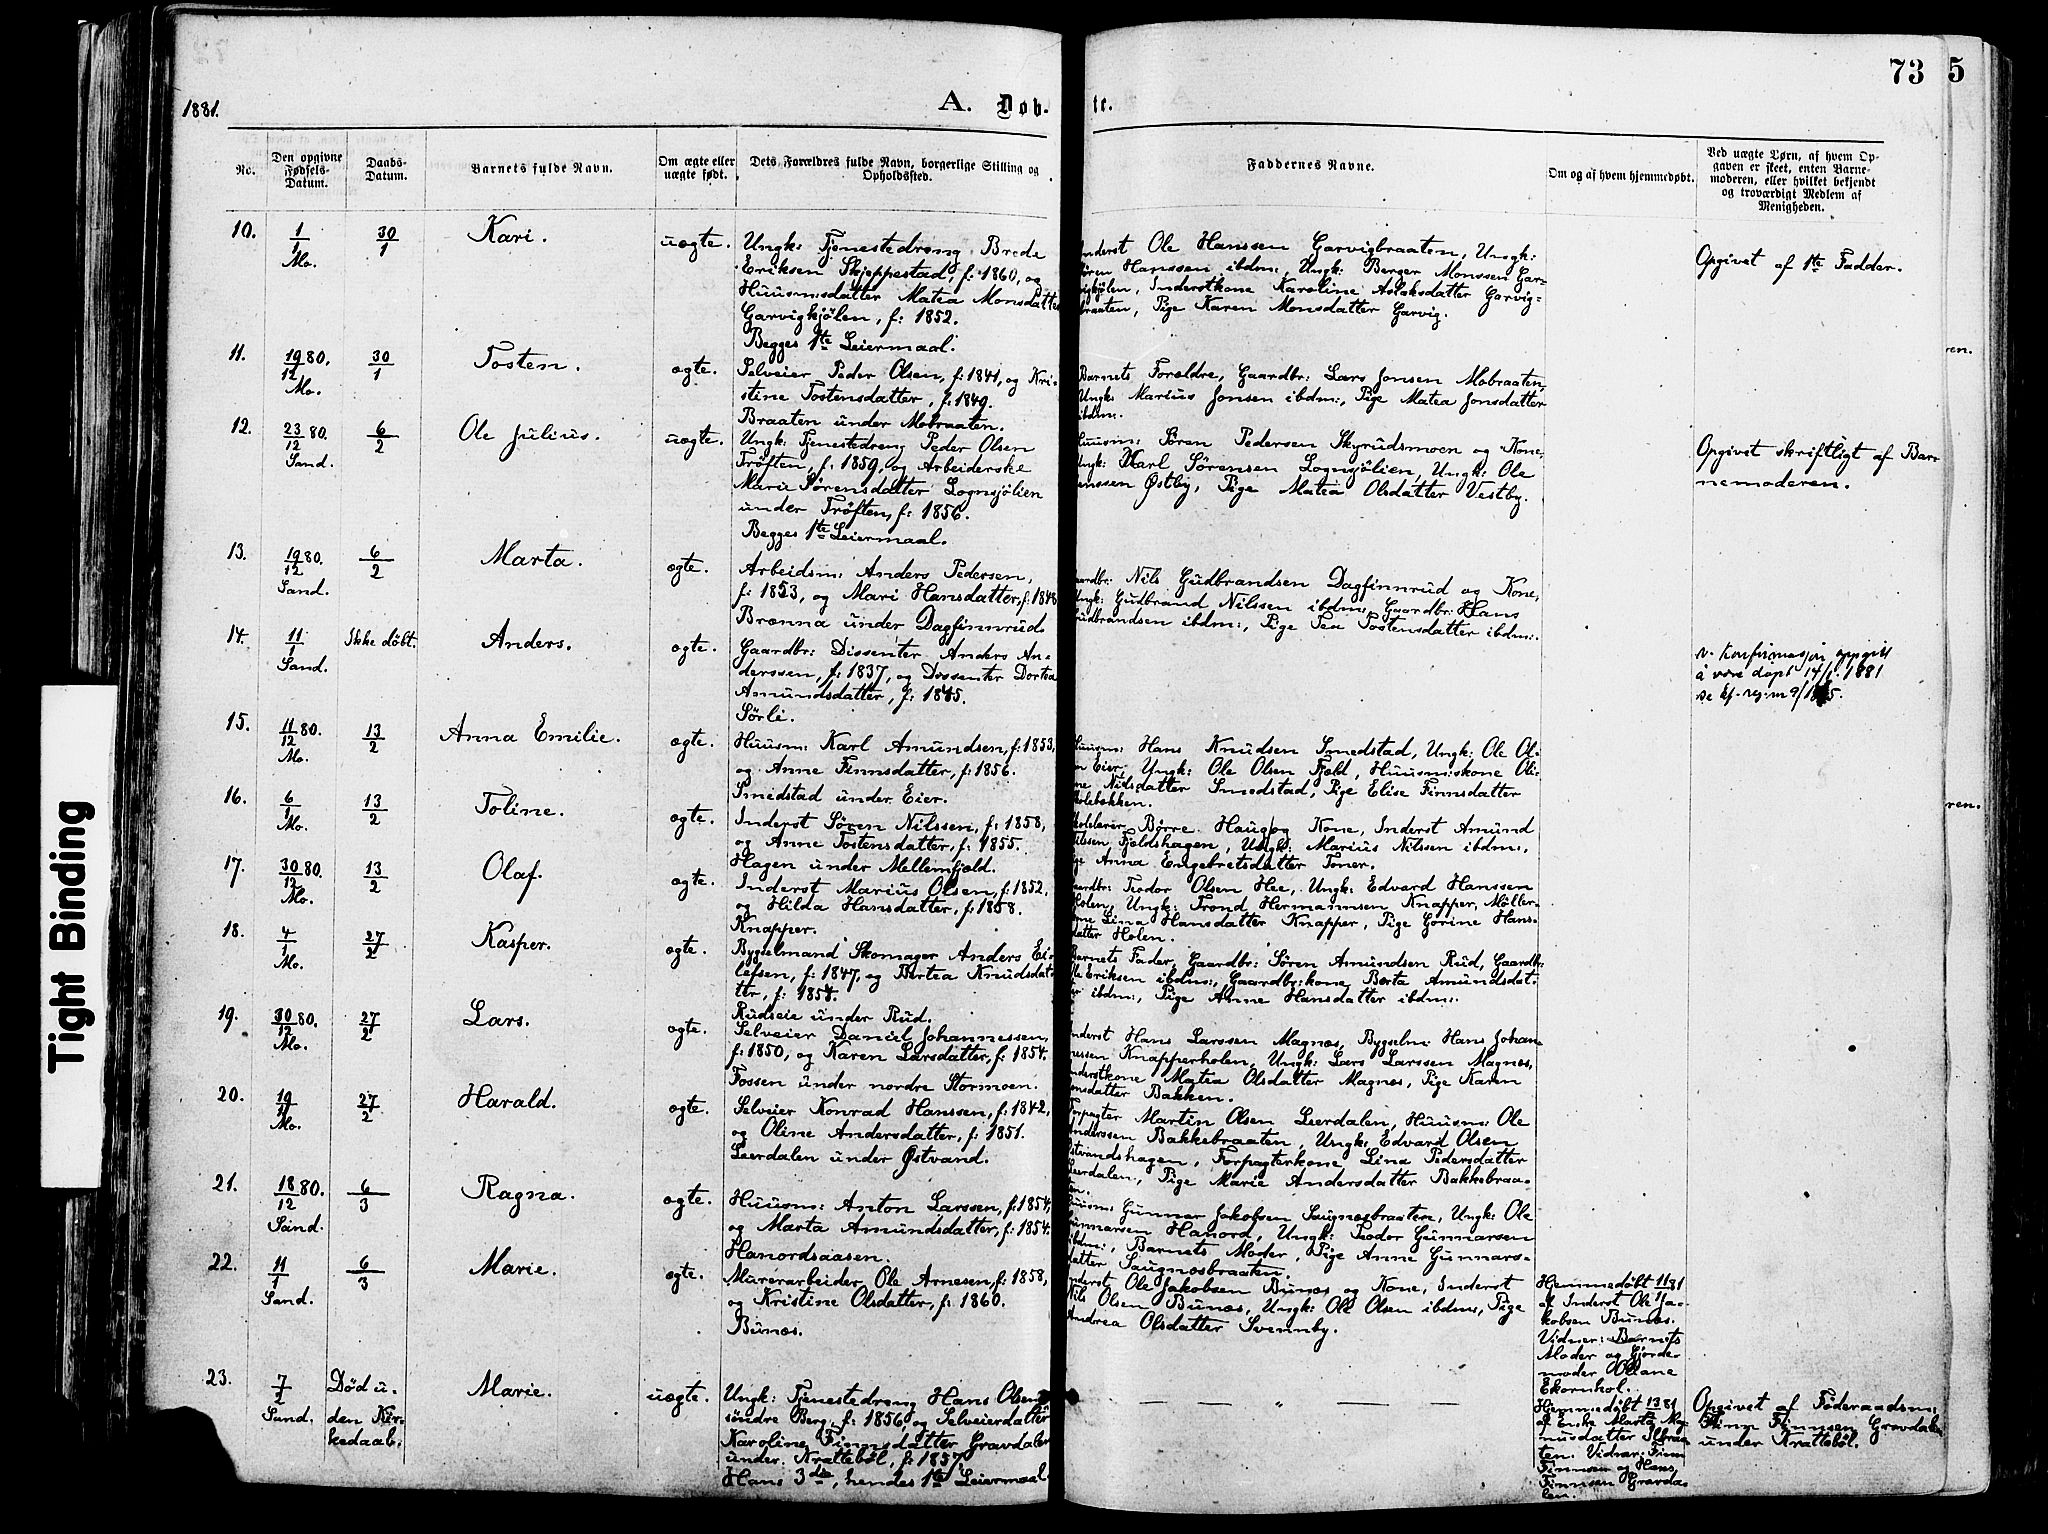 73
5
1881.
A. Døb-
te.
No.
Den opgivne Fødsels-Datum.
Daabs-Datum.
Barnets fulde Navn.
Om ægte eller uægte født.
Dets Forældres fulde Navn, borgerlige Stilling og Opholdssted.
Faddernes Navne.
Om og af hvem hjemmedøbt.
Ved uægte Børn, af hvem Opgaven er skeet, enten Barnemoderen, eller hvilket bekjendt og troværdigt Medlem af Menigheden.
10. 1/1 Mo. 30/1 Kari. uægte.
Ungk: Tjenestedreng Brede
Eriksen Skjeppestad, f: 1860, og
Huusmsdatter Matea Monsdatter
Garvigkjölen, f: 1852.
Begges 1te Leiermaal.
Inderst Ole Hanssen Garvigbraaten, Ungk:
Sören Hanssen ibdm:, Ungk: Berger Monssen Gar-
vigkjölen, Inderstkone Karoline Aslaksdatter Garvig-
braaten, Pige Karen Monsdatter Garvig.
Opgivet af 1te Fadder.
11. 19/12 80. Mo. 30/1 Tosten. ægte.
Selveier Peder Olsen, f: 1841, og Kri-
stine Tostensdatter, f: 1849.
Braaten under Mobraaten.
Barnets Forældre, Gaardbr: Lars Jonsen Mobraaten,
Ungk: Marius Jonsen ibdm:, Pige Matea Jonsdatter
ibdm:.
12. 23/12 80. Sand. 6/2 Ole Julius. uægte.
Ungk: Tjenestedreng Peder Olsen
Tröften, f: 1859, og Arbeiderske
Marie Sörensdatter Lognsjölien
under Tröften, f: 1856.
Begges 1te Leiermaal.
Huusm: Sören Pedersen Skyrudsmoen og Kone,
Ungk: Karl Sörensen Lognsjölien, Ungk: Ole
Jenssen Østby, Pige Matea Olsdatter Vestby.
Opgivet skriftligt af Bar-
nemoderen.
13. 19/12 80. Sand. 6/2 Marta. ægte.
Arbeidsm: Anders Pedersen,
f: 1853, og Mari Hansdatter, f: 1848
Brænna under Dagfinnrud.
Gaardbr: Nils Gudbrandsen Dagfinnrud og Kone,
Ungk: Gudbrand Nilssen ibdm:, Gaardbr: Hans
Gudbrandsen ibdm:, Pige Pea Tostensdatter ibdm:.
14. 11/1 Sand. Ikke döbt. Anders. ægte.
Gaardbr: Dissenter Anders An-
derssen, f: 1837, og Dissenter Dortea
Amundsdatter, f: 1845.
Sörli.
v. konfirmasjon oppgitt
å være döpt 14/1. 1881
se kf. reg.
15. 11/12 80. Mo. 13/2 Anna Emilie. ægte.
Huusm: Karl Amundsen, f: 1853,
og Anne Finnsdatter, f: 1856.
Smedstad under Eier.
Huusm: Hans Knudsen Smedstad, Ungk: Ole Ol-
sen Eier, Ungk: Ole Olsen Fjeld, Huusm:skone Oli-
ne Nilsdatter Smedstad, Pige Elise Finnsdatter
Holebækken.
16. 6/1 Mo. 13/2 Toline. ægte.
Inderst Sören Nilssen, f: 1858,
og Anne Tostensdatter, f: 1855.
Hagen under Mellemfjeld.
Skolelærer Börre Haug og Kone, Inderst Amund
Nilssen Fjeldshagen, Ungk: Marius Nilssen ibdm:,
Pige Anna Engebretsdatter Toner.
17. 30/12 80. Mo. 13/2 Olaf. ægte.
Inderst Marius Olsen, f: 1852,
og Hilda Hansdatter, f: 1858.
Knapper.
Gaardbr: Teodor Olsen Hee, Ungk: Edvard Hanssen
Holen, Ungk: Trond Hermannsen Knapper, Möller-
kone Lina Hansdatter Knapper, Pige Gorine Hans-
datter Holen.
18. 4/1 Mo. 27/2 Kasper. ægte.
Bygselmand Skomager Anders Ei-
lefsen, f: 1847, og Bertea Knudsdat-
ter, f: 1854.
Rudseie under Rud.
Barnets Fader, Gaardbr: Sören Amundsen Rud, Gaardbr:
Ole Eriksen ibdm:, Gaardbr:kone Berta Amundsdat-
ter ibdm:, Pige Anne Hansdatter ibdm:.
19. 30/12 80. Mo. 27/2 Lars. ægte.
Selveier Daniel Johannessen,
f: 1850, og Karen Larsdatter, f: 1854.
Fossen under nordre Stormoen.
Inderst Hans Larssen Magnæs, Bygselm: Hans Johan-
nessen Knapperholen, Ungk: Lars Larssen Magnæs,
Inderstkone Matea Olsdatter Magnæs, Pige Karen
Jonsdatter Bakken.
20. 19/1 Mo. 27/2 Harald. ægte.
Selveier Konrad Hanssen, f: 1842,
og Oline Andersdatter, f: 1851.
Leerdalen under Østvand.
Forpagter Martin Olsen Leerdalen, Huusm: Ole
Anderssen Bakkebraaten, Ungk: Edvard Olsen
Østvandshagen, Forpagterkone Lina Pedersdatter
Leerdalen, Pige Marie Andersdatter Bakkebraa-
ten.
21. 18/12 80. Sand. 6/3 Ragna. ægte.
Huusm: Anton Larssen, f: 1854,
og Marta Amundsdatter, f: 1854.
Hanordsaasen.
Huusm: Gunnar Jakobsen Saugnæsbraaten, Ungk: Ole
Gunnarsen Hanord, Ungk: Teodor Gunnarsen
ibdm:, Barnets Moder, Pige Anne Gunnars-
datter Saugnæsbraaten.
22. 11/1 Sand. 6/3 Marie. ægte.
Murerarbeider Ole Arnesen, f: 1858,
og Kristine Olsdatter, f: 1860.
Bunæs.
Inderst Ole Jakobsen Bunæs og Kone, Inderst
Nils Olsen Bunæs, Ungk: Ole Olsen ibdm:, Pige
Andrea Olsdatter Svennby.
Hjemmedöbt 11/1 81
af Inderst Ole Ja-
kobsen Bunæs.
Vidner: Barnets
Moder og Gjorde-
moder Oliane
Ekornhol.
23. 7/2 Sand. Död u-
den Kir-
kedaab. Marie. uægte.
Ungk: Tjenestedreng Hans Olsen
söndre Berg, f: 1856 og Selveierdatter
Karoline Finnsdatter Gravdalen
under Kratteböl, f: 1857
Hans 3die, hendes 1te Leiermaal.
— — „ — —
Hjemmedöbt 13/2 81
af Enke Marte Mag-
nusdatter
ten. Vidner: Finn
Finnsen og Hans
Finnsen Gravda-
len.
Opgivet af Föderaadsm:
Finn Finnsen Gravdalen
under Kratteböl.
ren.
ren.
Tight Binding